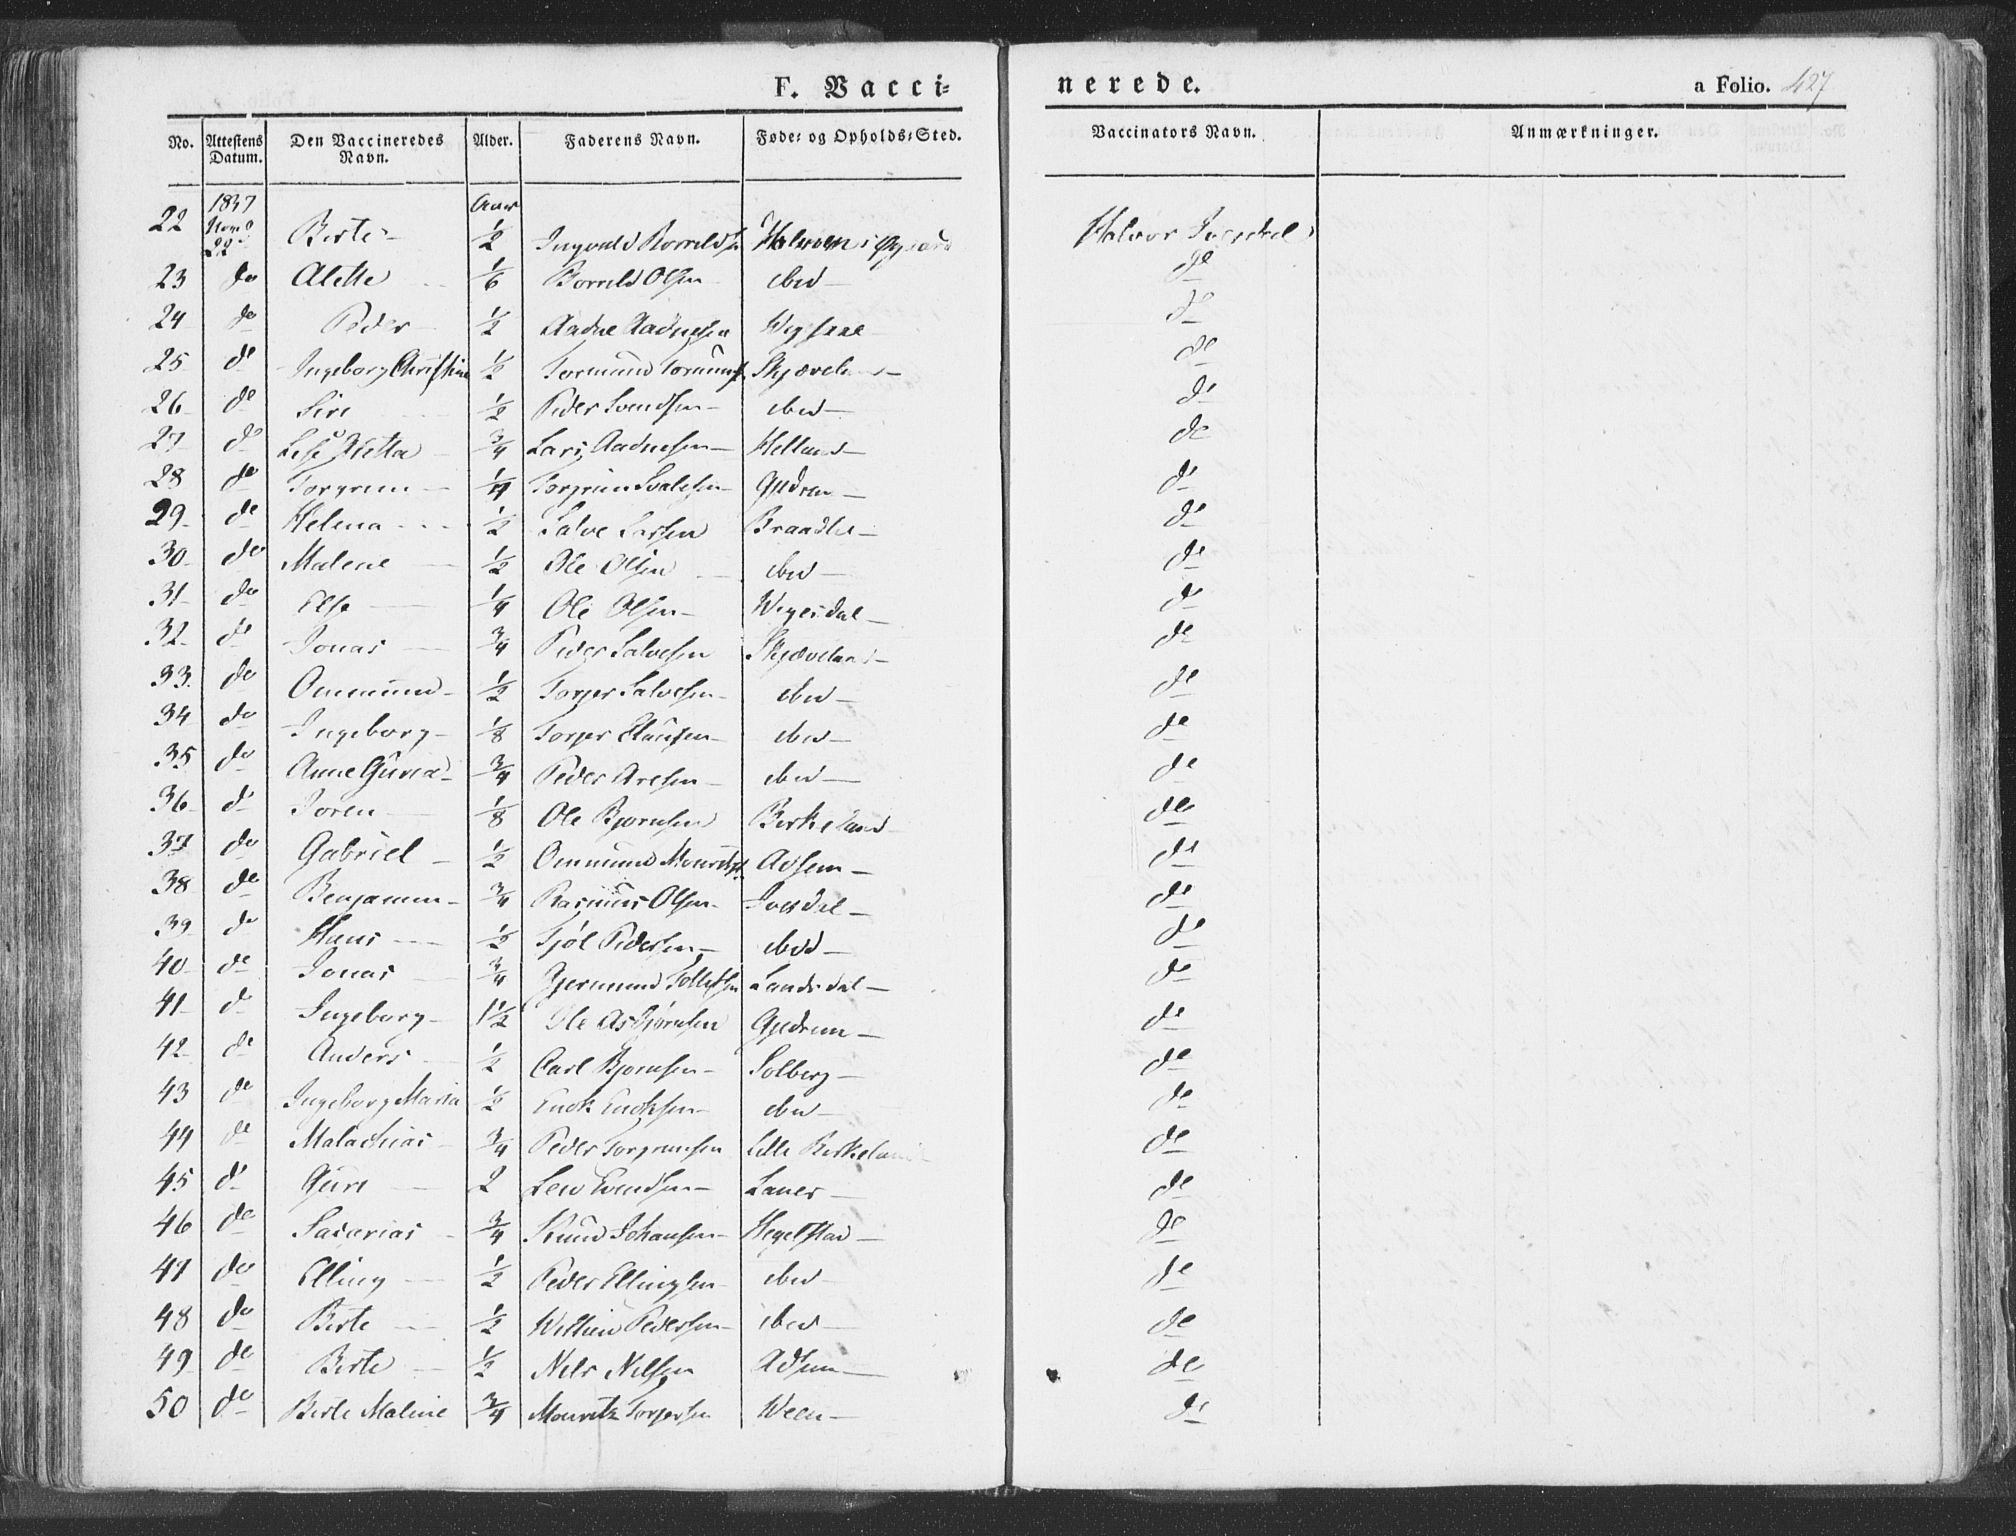 F. Vacci= nerede. a Folio. 427
No. Attestens Datum. Den Vaccineredes Navn. Alder. Faderens Navn. Føde= og Opholds=Sted. Vaccinators Navn. Anmærkninger.
1837 Aar
22 Novb 22 Berte 1/2 Ingvald Holmen i Halvor
23 do Alette 1/6 Borrild Olsen ibid do
24 do Peder 1/2 Aadne Aadnesen do
25 do Ingeborg Christine 1/2 Tormund Skjæveland do
26 do Siri 1/2 Peder Svendsen ibid do
27 do Lise Mette 3/4 Lars Aadnesen Helland do
28 do Torgrim 1/4 Torgrim Gydrem do
29 do Helena 1/2 Salve Larsen do
30 do Malene 1/2 Ole Olsen ibid do
31 do Else 1/4 Ole Olsen Wigesdal do
32 do Jonas 3/4 Peder Salvesen Skjæveland do
33 do Ommund 1/2 Torger Salvesen ibid do
34 do Ingeborg 1/8 Torger Clausen ibid do
35 do Anne Guria 3/4 Peder Aresen ibid do
36 do Joren 1/8 Ole Bjørnsen Birkeland do
37 do Gabriel 1/2 Ommund Mouritss. Adsem do
38 do Benjamin 3/4 Rasmus Olsen Ivesdal do
39 do Hans 1/2 Sjøl Pedersen ibid do
40 do Jonas 3/4 Gjermund Tollefsen Landsdal do
41 do Ingeborg 1 1/2 Ole Asbjørnsen Gydrem do
42 do Anders 1/2 Carl Bjørnsen Solberg do
43 do Ingeborg Maria 1/2 Enok Enoksen ibid do
44 do Malachias 3/4 Peder Torgrimsen Lille Birkeland do
45 do Guri 2 Svendsen do
46 do Sacarias 3/4 Knud Johansen Hegelstad do
47 do Elling 1/2 Peder Ellingsen ibid do
48 do Berte 1/2 Pedersen ibid do
49 do Berte 1/2 Nels Nelsen Adsem do
50 do Berte Maline 3/4 Mouritz Torgersen Ween do